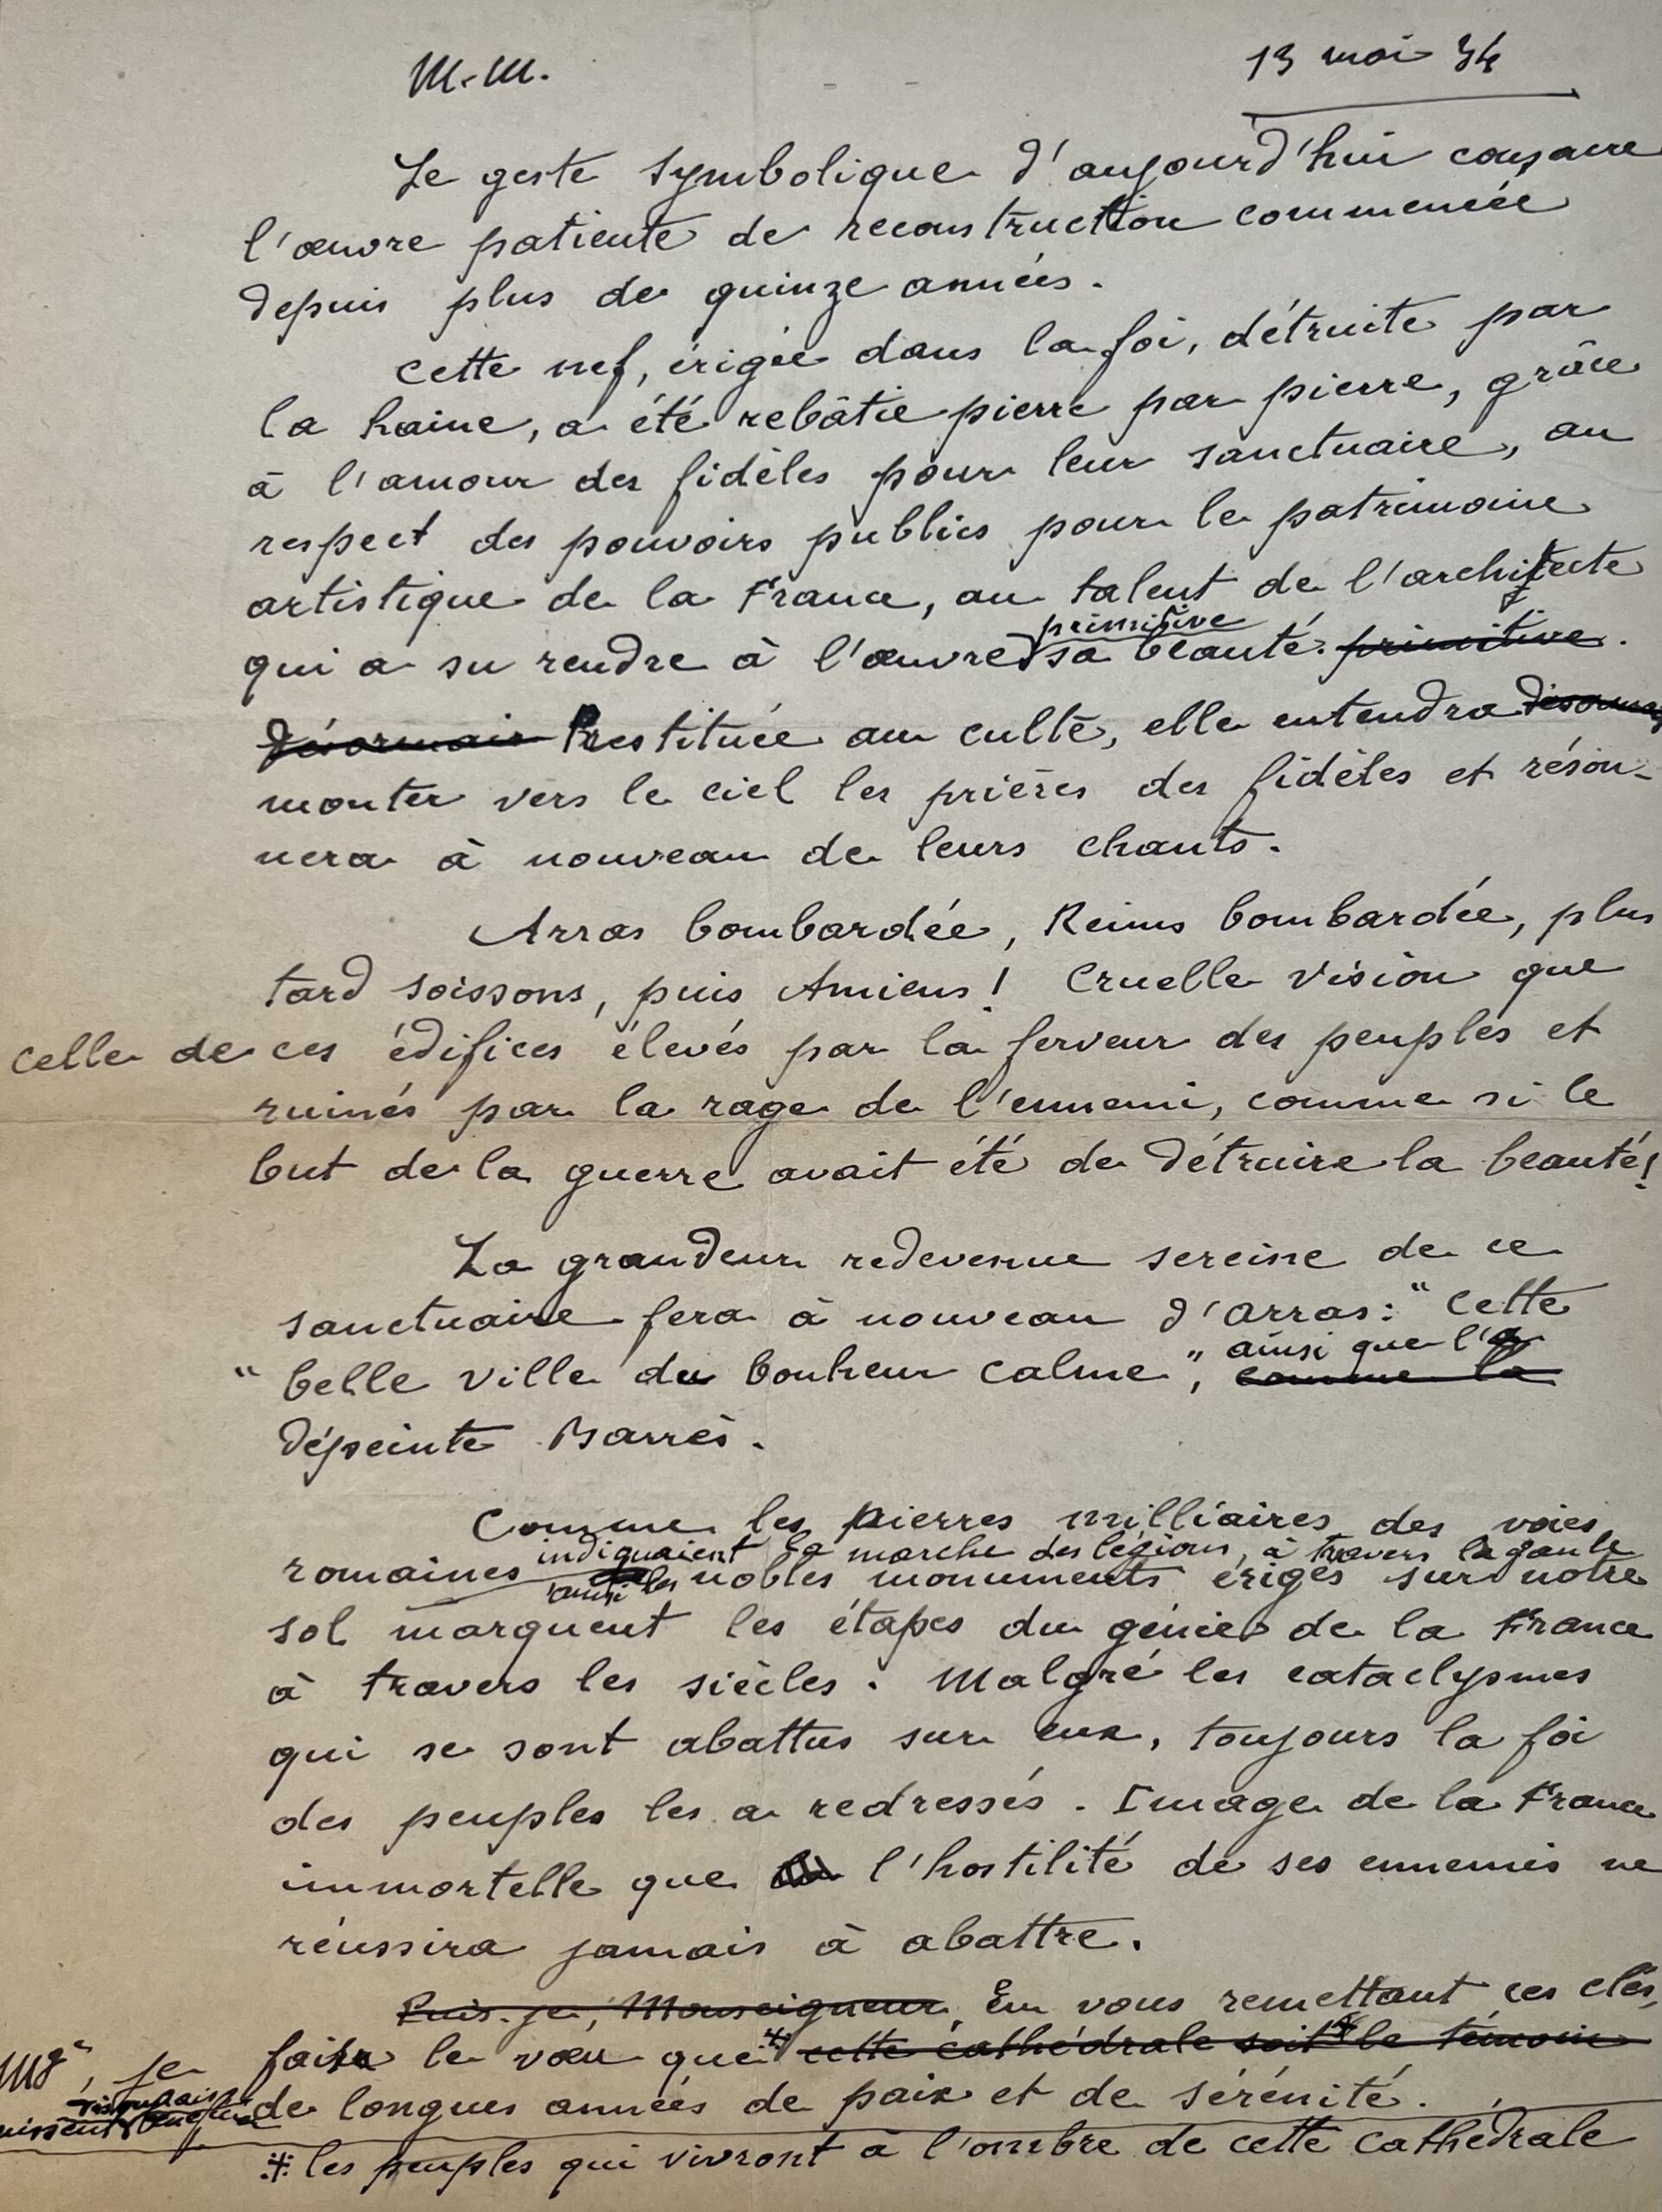 M.M.
13 mai 34
Le geste symbolique d'aujourd'hui consacre
l'œuvre patiente de reconstruction commencée
depuis plus de quinze années.
Cette nef, érigée dans la foi, détruite par
la haine, a été rebâtie pierre par pierre, grâce
à l'amour des fidèles pour leur sanctuaire, au
respect des pouvoirs publics pour le patrimoine
artistique de la France, au talent de l'architecte
primitive
qui a su rendre à l'œuvre sa beauté. primitive.
Désormais Restituée au culte, elle entendra désormais
monter vers le ciel les prières des fidèles et réson-
nera à nouveau de leurs chants.
Arras bombardée, Reims bombardée, plus
tard Soissons, puis Amiens! Cruelle vision que
celle de ces édifices élevés par la ferveur des peuples et
ruinés par la rage de l'ennemi, comme si le
but de la guerre avait été de détruire la beauté!
La grandeur redevenue sereine de ce
sanctuaire fera à nouveau d'Arras: "cette
ainsi que l'a
"belle ville du bonheur calme", comme la
dépeinte Barrès.
Comme les pierres milliaires des voies
indiquaient la marche des légions, à travers la gaule
romaines ainsi les nobles monuments érigés sur notre
sol marquent les étapes du génie de la France
à travers les siècles. Malgré les cataclysmes
qui se sont abattus sur eux, toujours la foi
des peuples les a redressés. Image de la France
immortelle que l'hostilité de ses ennemis ne
réussira jamais à abattre.
Puis-je, Monseigneur, En vous remettant ces clés,
Mgr, je fais le vœu que * cette cathédrale soit le témoin
de longues années de paix et de sérénité.
* les peuples qui vivront à l'ombre de cette cathédrale